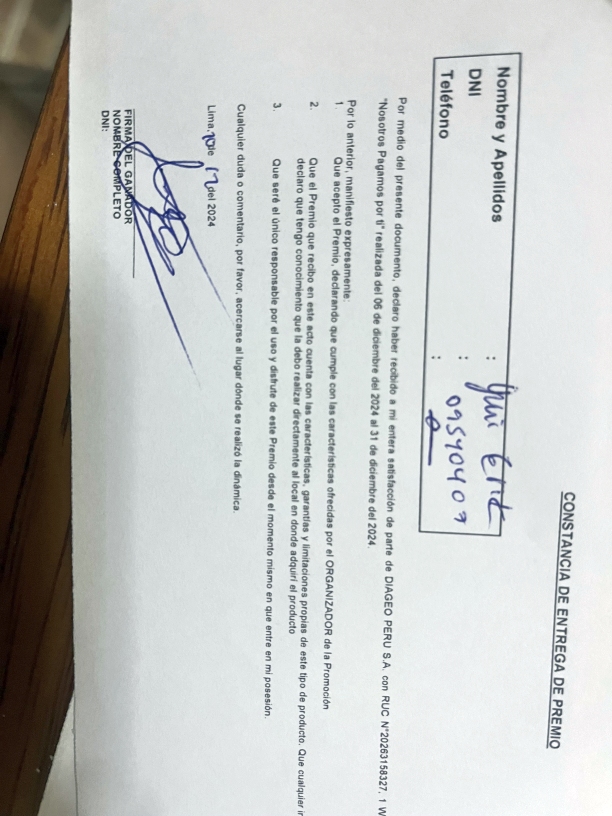 CONSTANCIA DE ENTREGA DE PREMIO
Nombre y Apellidos :
DNI : 09540409
Teléfono :
Por medio del presente documento, declaro haber recibido a mi entera satisfacción de parte de DIAGEO PERU S.A. con RUC N°20263158327, 1 W
"Nosotros Pagamos por ti" realizada del 06 de diciembre del 2024 al 31 de diciembre del 2024.
Por lo anterior, manifiesto expresamente:
1. Que acepto el Premio, declarando que cumple con las características ofrecidas por el ORGANIZADOR de la Promoción
2. Que el Premio que recibo en este acto cuenta con las características, garantías y limitaciones propias de este tipo de producto. Que cualquier
declaro que tengo conocimiento que la debo realizar directamente al local en donde adquirí el producto
3. Que seré el único responsable por el uso y disfrute de este Premio desde el momento mismo en que entre en mi posesión.
Cualquier duda o comentario, por favor, acercarse al lugar dónde se realizó la dinámica.
Lima, de del 2024
FIRMA DEL GANADOR
NOMBRE COMPLETO
DNI: